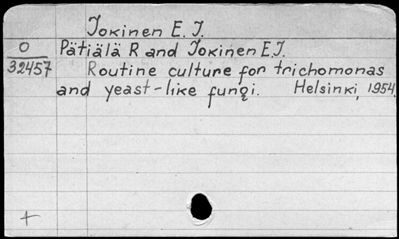 Jokinen E. J.
O Pätiälä R and Jokinen E.J.
32457 Routine culture for trichomonas
and yeast-like fungi. Helsinki, 1954.
+